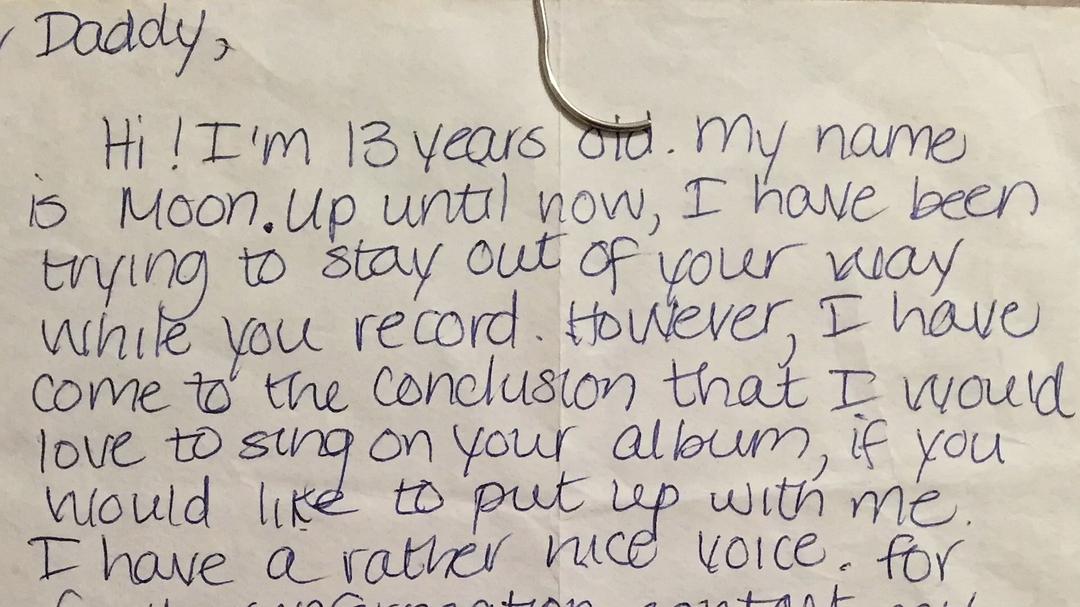 Daddy,
Hi! I'm 13 years old. My name
is Moon. Up until now, I have been
trying to stay out of your way
while you record. However, I have
come to the conclusion that I would
love to sing on your album, if you
would like to put up with me.
I have a rather nice voice. For
information contact